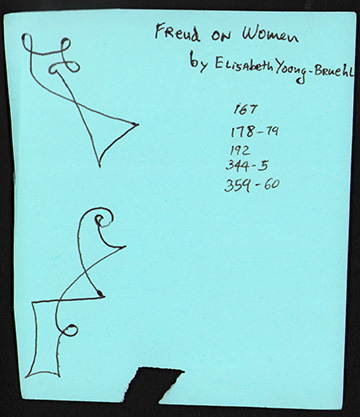 Freud on Women
by Elisabeth Young-Bruehl
167
178-79
192
344-5
359-60